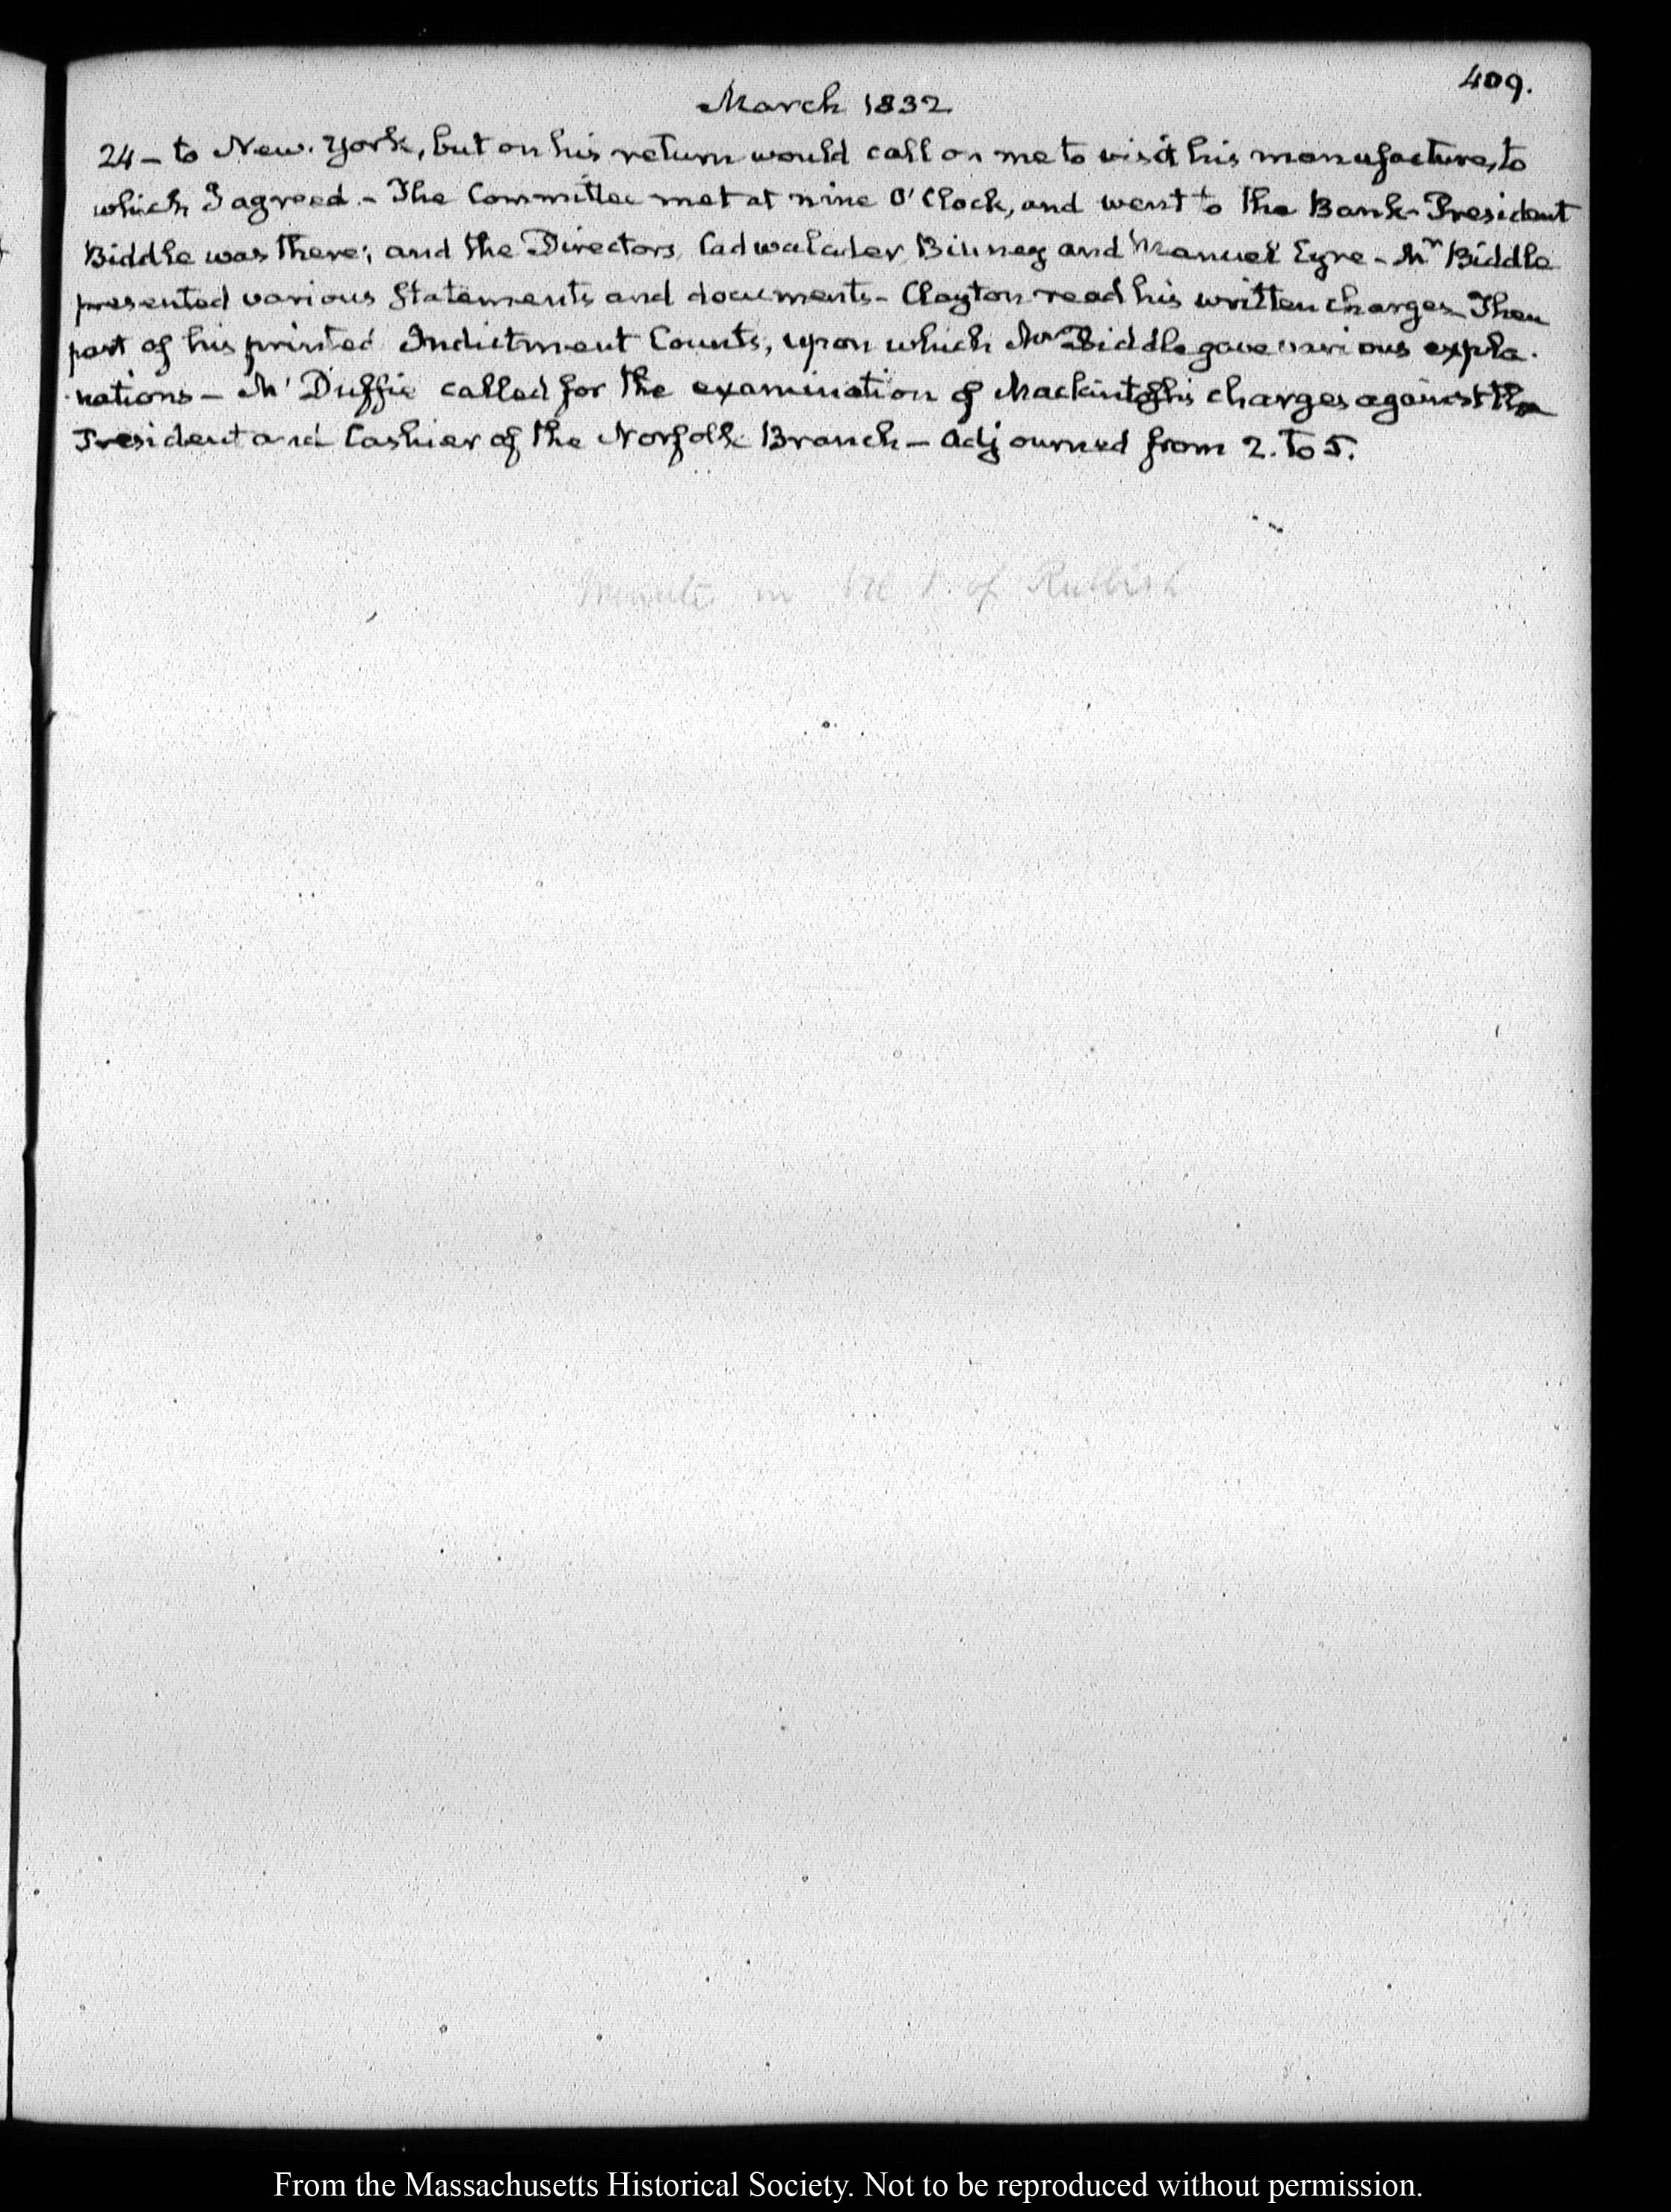 409.
March 1832
24 – to New-York, but on his return would call on me to visit his manufacture, to
which I agreed. – The Committee met at nine O'Clock, and went to the Bank – President
Biddle was there; and the Directors, Cadwalader, Binney and Manuel Eyre – Mr Biddle
presented various Statements and documents – Clayton read his written charges – Then
part of his printed Indictment Counts, upon which Mr Biddle gave various expla-
-nations – Mc Duffie called for the examination of Mackintosh's charges against the
President and Cashier of the Norfolk Branch – Adjourned from 2. to 5.
Minute in Vol of Rubbish
From the Massachusetts Historical Society. Not to be reproduced without permission.